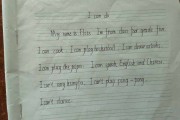 I can do
My name is Eliza. I'm from class four grade five.
I can cook. I can play basketball. I can draw cartoons.
I can play the pipa. I can speak English and Chinese.
I can't sing English. I can't play ping-pong.
I can't dance.